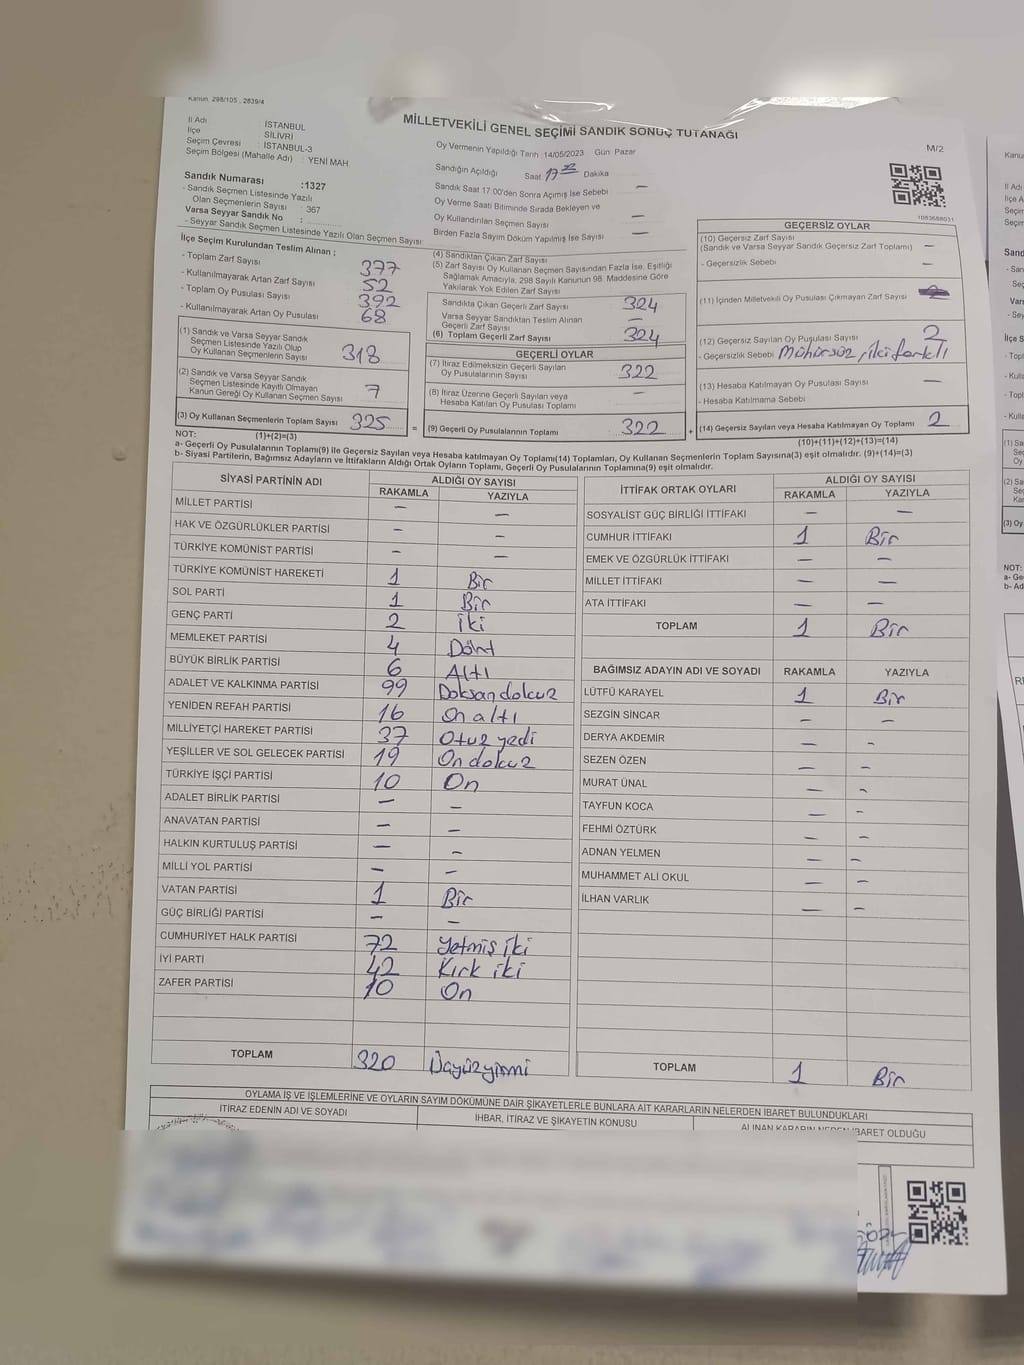 Kanun 298/105 , 2839/4
MİLLETVEKİLİ GENEL SEÇİMİ SANDIK SONUÇ TUTANAĞI
M/2
İl Adı : İSTANBUL
İlçe : SİLİVRİ
Seçim Çevresi : İSTANBUL-3
Seçim Bölgesi (Mahalle Adı) : YENİ MAH
Sandık Numarası :1327
- Sandık Seçmen Listesinde Yazılı
Olan Seçmenlerin Sayısı : 367
Varsa Seyyar Sandık No :
- Seyyar Sandık Seçmen Listesinde Yazılı Olan Seçmen Sayısı
İlçe Seçim Kurulundan Teslim Alınan ;
- Toplam Zarf Sayısı 377
- Kullanılmayarak Artan Zarf Sayısı 52
- Toplam Oy Pusulası Sayısı 392
- Kullanılmayarak Artan Oy Pusulası 68
(1) Sandık ve Varsa Seyyar Sandık
Seçmen Listesinde Yazılı Olup
Oy Kullanan Seçmenlerin Sayısı 318
(2) Sandık ve Varsa Seyyar Sandık
Seçmen Listesinde Kayıtlı Olmayan
Kanun Gereği Oy Kullanan Seçmen Sayısı 7
(3) Oy Kullanan Seçmenlerin Toplam Sayısı 325
(1)+(2)=(3)
Oy Vermenin Yapıldığı Tarih :14/05/2023 Gün: Pazar
Sandığın Açıldığı Saat Dakika
Sandık Saat 17.00'den Sonra Açımış İse Sebebi —
Oy Verme Saati Bitiminde Sırada Bekleyen ve
Oy Kullandırılan Seçmen Sayısı —
Birden Fazla Sayım Döküm Yapılmış İse Sayısı —
(4) Sandıktan Çıkan Zarf Sayısı
(5) Zarf Sayısı Oy Kullanan Seçmen Sayısından Fazla İse, Eşitliği
Sağlamak Amacıyla, 298 Sayılı Kanunun 98. Maddesine Göre
Yakılarak Yok Edilen Zarf Sayısı
Sandıkta Çıkan Geçerli Zarf Sayısı 324
Varsa Seyyar Sandıktan Teslim Alınan
Geçerli Zarf Sayısı —
(6) Toplam Geçerli Zarf Sayısı 324
GEÇERLİ OYLAR
(7) İtiraz Edilmeksizin Geçerli Sayılan
Oy Pusulalarının Sayısı 322
(8) İtiraz Üzerine Geçerli Sayılan veya
Hesaba Katılan Oy Pusulası Toplamı —
= (9) Geçerli Oy Pusulalarının Toplamı 322 +
1083688031
GEÇERSİZ OYLAR
(10) Geçersiz Zarf Sayısı
(Sandık ve Varsa Seyyar Sandık Geçersiz Zarf Toplamı) —
- Geçersizlik Sebebi —
(11) İçinden Milletvekili Oy Pusulası Çıkmayan Zarf Sayısı
(12) Geçersiz Sayılan Oy Pusulası Sayısı 2
- Geçersizlik Sebebi Mühürsüz, iki farklı
(13) Hesaba Katılmayan Oy Pusulası Sayısı —
- Hesaba Katılmama Sebebi
(14) Geçersiz Sayılan veya Hesaba Katılmayan Oy Toplamı 2
(10)+(11)+(12)+(13)=(14)
NOT:
a- Geçerli Oy Pusulalarının Toplamı(9) ile Geçersiz Sayılan veya Hesaba katılmayan Oy Toplamı(14) Toplamları, Oy Kullanan Seçmenlerin Toplam Sayısına(3) eşit olmalıdır. (9)+(14)=(3)
b- Siyasi Partilerin, Bağımsız Adayların ve İttifakların Aldığı Ortak Oyların Toplamı, Geçerli Oy Pusulalarının Toplamına(9) eşit olmalıdır.
SİYASİ PARTİNİN ADI ALDIĞI OY SAYISI
RAKAMLA YAZIYLA
MİLLET PARTİSİ — —
HAK VE ÖZGÜRLÜKLER PARTİSİ — —
TÜRKİYE KOMÜNİST PARTİSİ — —
TÜRKİYE KOMÜNİST HAREKETİ 1 Bir
SOL PARTİ 1 Bir
GENÇ PARTİ 2 iki
MEMLEKET PARTİSİ 4 Dört
BÜYÜK BİRLİK PARTİSİ 6 Altı
ADALET VE KALKINMA PARTİSİ 99 Doksandokuz
YENİDEN REFAH PARTİSİ 16 On altı
MİLLİYETÇİ HAREKET PARTİSİ 37 Otuz yedi
YEŞİLLER VE SOL GELECEK PARTİSİ 19 On dokuz
TÜRKİYE İŞÇİ PARTİSİ 10 On
ADALET BİRLİK PARTİSİ — —
ANAVATAN PARTİSİ — —
HALKIN KURTULUŞ PARTİSİ — —
MİLLİ YOL PARTİSİ — —
VATAN PARTİSİ 1 Bir
GÜÇ BİRLİĞİ PARTİSİ — —
CUMHURİYET HALK PARTİSİ 72 Yetmiş iki
İYİ PARTİ 42 Kırk iki
ZAFER PARTİSİ 10 On
TOPLAM 320 Üçyüzyirmi
İTTİFAK ORTAK OYLARI ALDIĞI OY SAYISI
RAKAMLA YAZIYLA
SOSYALİST GÜÇ BİRLİĞİ İTTİFAKI — —
CUMHUR İTTİFAKI 1 Bir
EMEK VE ÖZGÜRLÜK İTTİFAKI — —
MİLLET İTTİFAKI — —
ATA İTTİFAKI — —
TOPLAM 1 Bir
BAĞIMSIZ ADAYIN ADI VE SOYADI RAKAMLA YAZIYLA
LÜTFÜ KARAYEL 1 Bir
SEZGİN SİNCAR — —
DERYA AKDEMİR — —
SEZEN ÖZEN — —
MURAT ÜNAL — —
TAYFUN KOCA — —
FEHMİ ÖZTÜRK — —
ADNAN YELMEN — —
MUHAMMET ALİ OKUL — —
İLHAN VARLIK — —
TOPLAM 1 Bir
OYLAMA İŞ VE İŞLEMLERİNE VE OYLARIN SAYIM DÖKÜMÜNE DAİR ŞİKAYETLERLE BUNLARA AİT KARARLARIN NELERDEN İBARET BULUNDUKLARI
İTİRAZ EDENİN ADI VE SOYADI İHBAR, İTİRAZ VE ŞİKAYETİN KONUSU ALINAN KARARIN NEDEN İBARET OLDUĞU